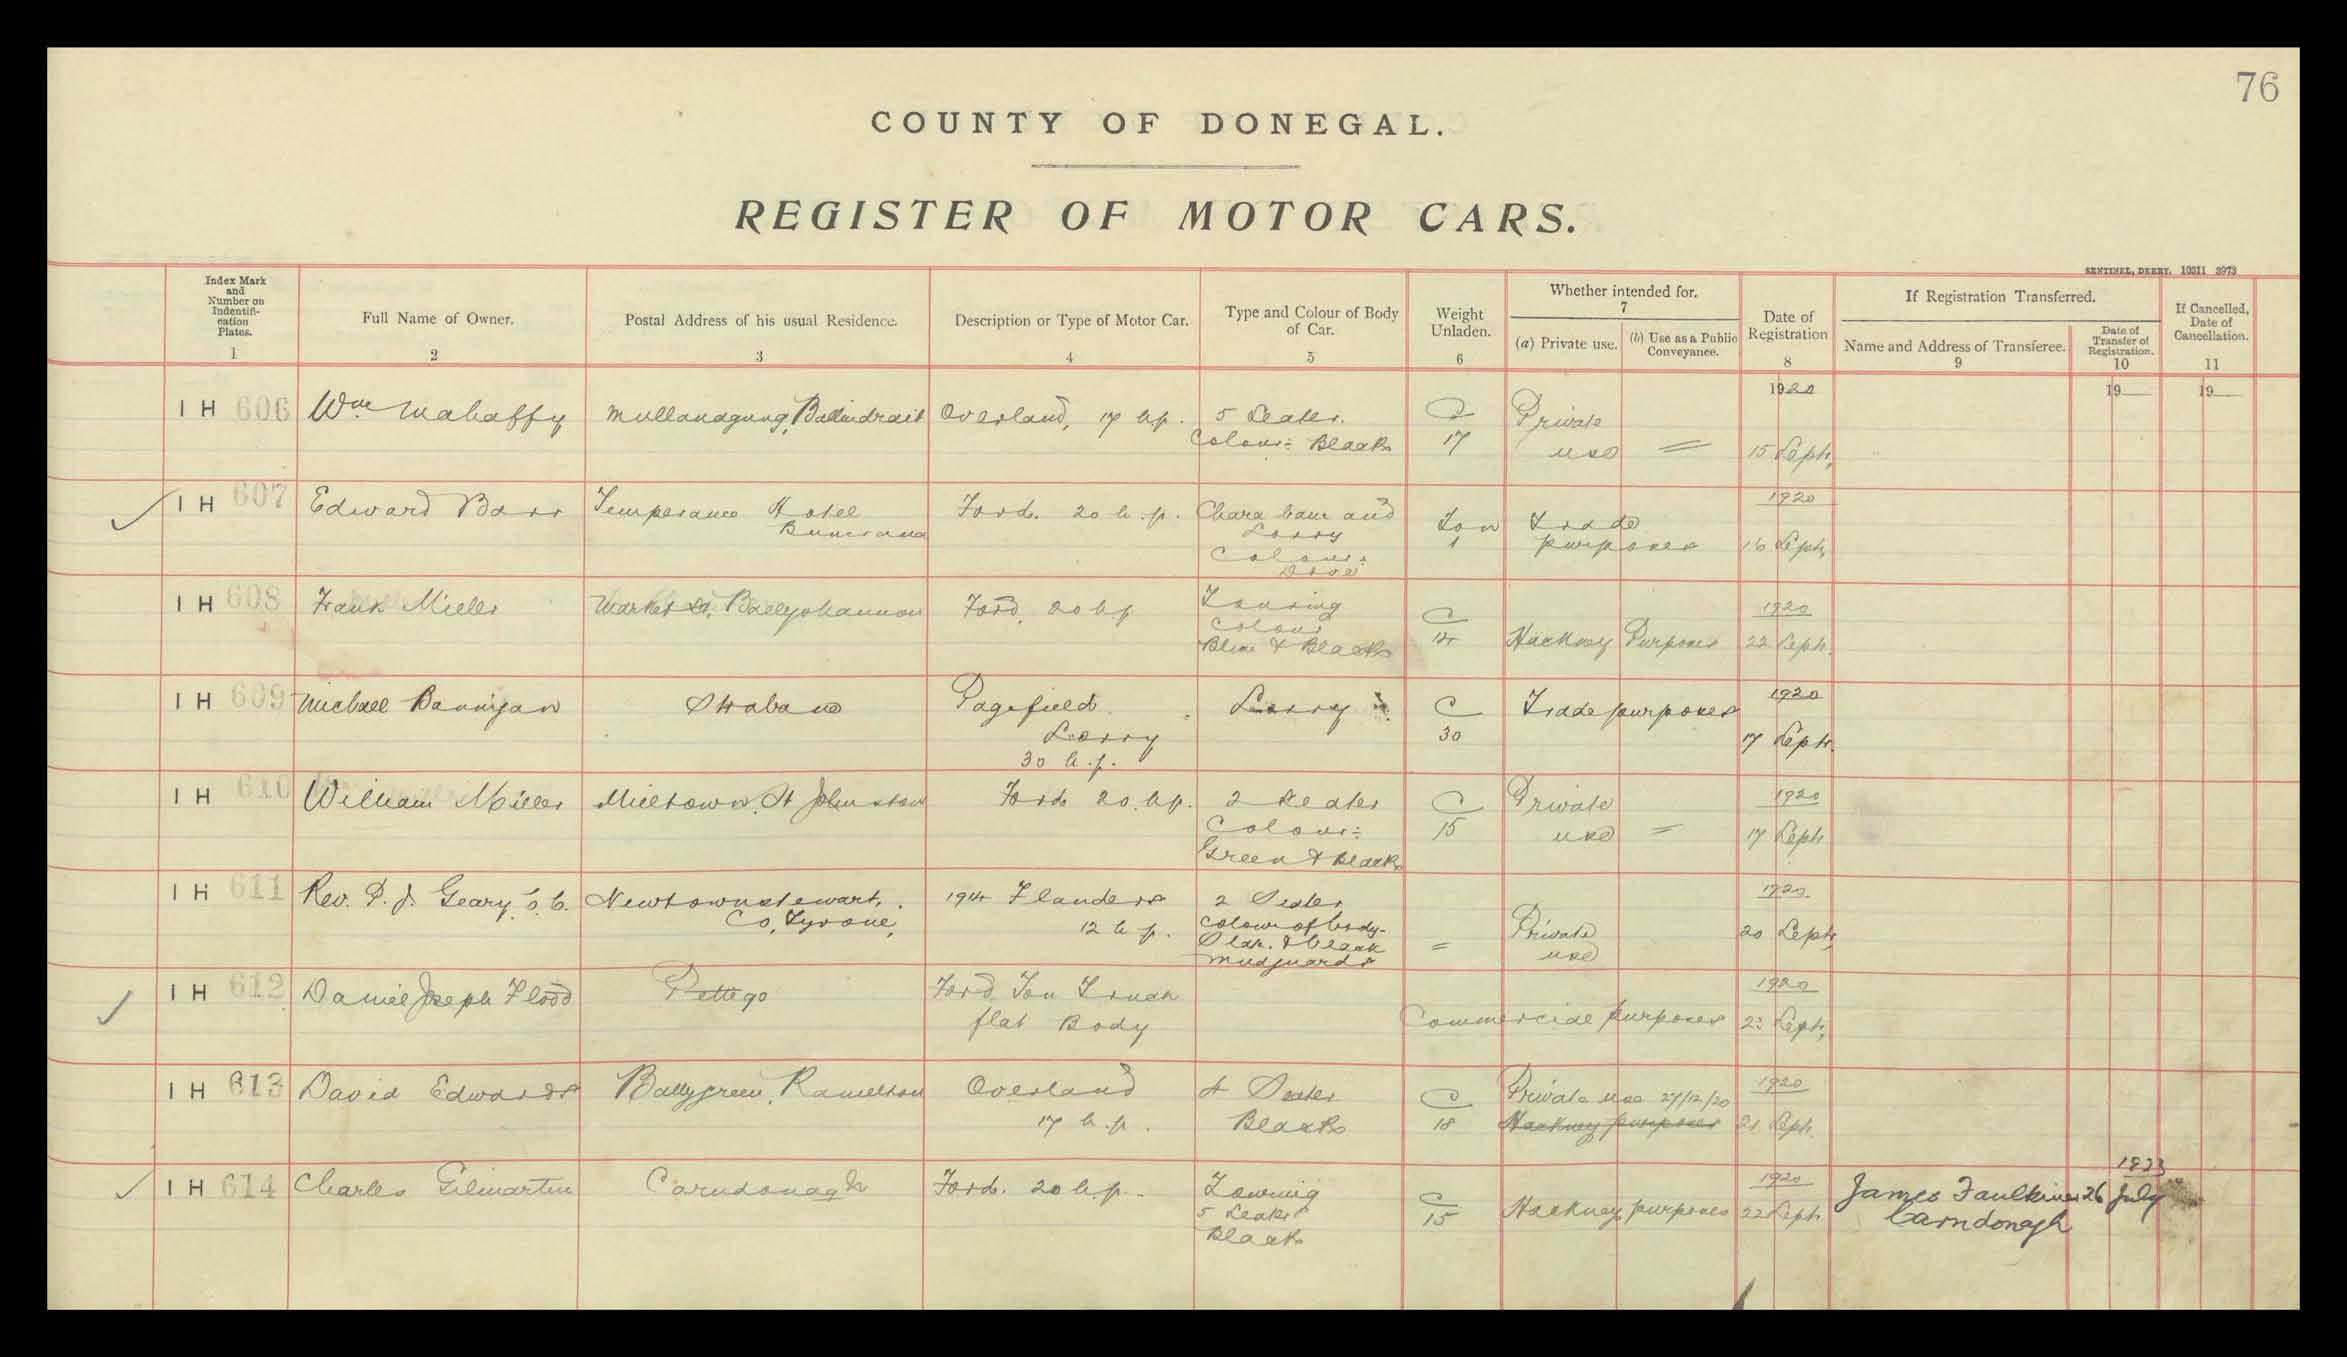 76
COUNTY OF DONEGAL.
REGISTER OF MOTOR CARS.
SENTINEL, DERRY. 10311 3973
Index Mark and Number on Indentifi-cation Plates. 1
Full Name of Owner. 2
Postal Address of his usual Residence. 3
Description or Type of Motor Car. 4
Type and Colour of Body of Car. 5
Weight Unladen. 6
Whether intended for. 7
(a) Private use.
(b) Use as a Public Conveyance.
Date of Registration 8
If Registration Transferred.
Name and Address of Transferee. 9
Date of Transfer of Registration. 10
If Cancelled, Date of Cancellation. 11
1920 19 19
IH 606 Wm Mahaffy Ballindrait Overland, 17 h.p. 5 Seater. Private
Colour: Black 17 use = 15 Sept,
1920
IH 607 Edward Barr Temperance Hotel Ford. 20 h.p. Chara banc and Ton Trade
Buncrana Lorry 1 purposes 16 Sept,
Colour:
IH 608 Frank Miller Market St, Ballyshannon Ford, 20 h.p Touring C 1920
Colour
Blue & Black 14 Hackney Purposes 22 Sept.
IH 609 Michael Bannigan Strabane Pagefield Lorry C Trade purposes 1920
Lorry 30 17 Sept.
30 h.p.
IH 610 William Miller Milltown, St Johnston Ford 20 h.p. 2 Seater C Private 1920
Colour: 15 use = 17 Sept
Green & Black
IH 611 Rev. P. J. Geary, C.C. Newtownstewart, 1914 Flanders 2 Seater 1920
Co, Tyrone, 12 h.p. Colour of body- = Private use 20 Sept,
& black
mudguards
IH 612 Daniel Joseph Flood Pettigo Ford Ton Truck 1920
flat Body Commercial purposes Sept,
IH 613 David Edwards Ballygreen, Ramelton Overland 4 Seater C Private use 27/12/20 1920
17 h.p. Black 18 Hackney purposes 21 Sept.
1923
IH 614 Charles Gilmartin Carndonagh Ford. 20 h.p. Touring C 1920 James Faulkiner 26 July
5 Seater 15 Hackney purposes 22 Sept Carndonagh
Black